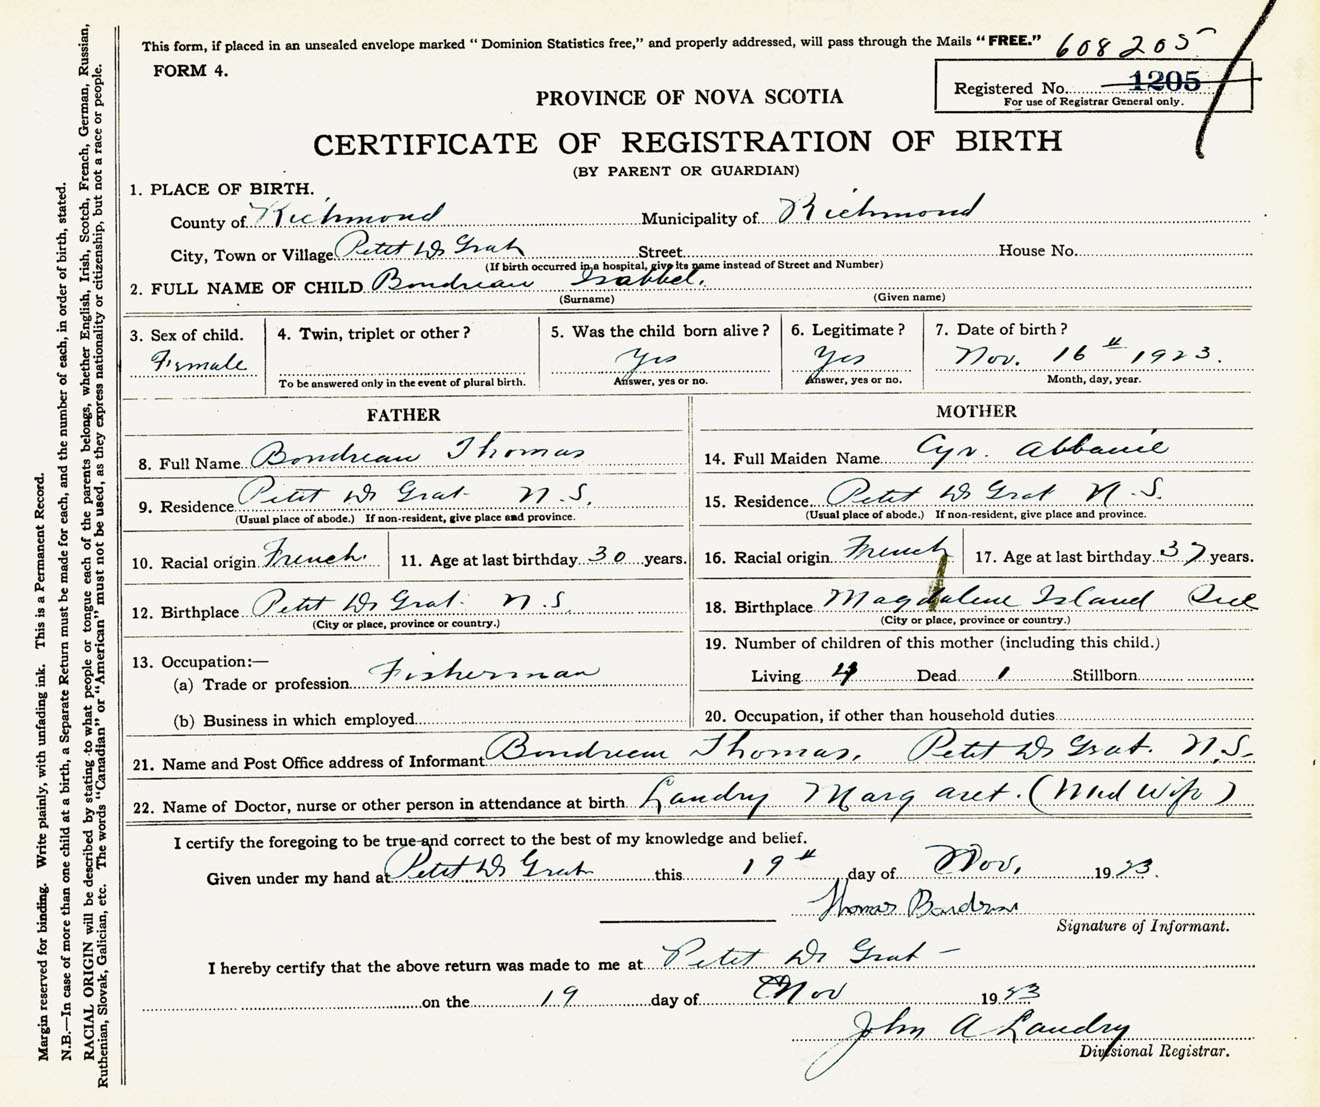 This form, if placed in an unsealed envelope marked "Dominion Statistics free," and properly addressed, will pass through the Mails "FREE." 608205
FORM 4.
Registered No. 1205
For use of Registrar General only.
PROVINCE OF NOVA SCOTIA
CERTIFICATE OF REGISTRATION OF BIRTH
(BY PARENT OR GUARDIAN)
1. PLACE OF BIRTH.
County of Richmond Municipality of Richmond
City, Town or Village Petit De Grat Street House No.
(If birth occurred in a hospital, give its name instead of Street and Number)
2. FULL NAME OF CHILD Boudreau Isabbel.
(Surname) (Given name)
3. Sex of child. 4. Twin, triplet or other? 5. Was the child born alive? 6. Legitimate? 7. Date of birth?
Female Yes Yes Nov. 16th 1923.
To be answered only in the event of plural birth. Answer, yes or no. Answer, yes or no. Month, day, year.
FATHER MOTHER
8. Full Name Boudreau Thomas 14. Full Maiden Name Cyr. Abbanie
9. Residence Petit De Grat N.S. 15. Residence Petit De Grat N.S.
(Usual place of abode.) If non-resident, give place and province. (Usual place of abode.) If non-resident, give place and province.
10. Racial origin French 11. Age at last birthday 30 years. 16. Racial origin French 17. Age at last birthday 37 years.
12. Birthplace Petit De Grat N.S. 18. Birthplace Magdalene Island Que
(City or place, province or country.) (City or place, province or country.)
19. Number of children of this mother (including this child.)
13. Occupation:—
(a) Trade or profession Fisherman Living 4 Dead 1 Stillborn
(b) Business in which employed 20. Occupation, if other than household duties
21. Name and Post Office address of Informant Boudreau Thomas, Petit De Grat. N.S.
22. Name of Doctor, nurse or other person in attendance at birth Landry Margaret. (Mid Wife)
I certify the foregoing to be true and correct to the best of my knowledge and belief.
Given under my hand at Petit De Grat this 19th day of Nov. 1923.
Thomas Boudreau
Signature of Informant.
I hereby certify that the above return was made to me at Petit De Grat
on the 19 day of Nov 1923
John A Landry
Divisional Registrar.
Margin reserved for binding. Write plainly, with unfading ink. This is a Permanent Record.
N.B.—In case of more than one child at a birth, a Separate Return must be made for each, and the number of each, in order of birth, stated.
RACIAL ORIGIN will be described by stating to what people or tongue each of the parents belongs, whether English, Irish, Scotch, French, German, Russian,
Ruthenian, Slovak, Galician, etc. The words "Canadian" or "American" must not be used, as they express nationality or citizenship, but not a race or people.